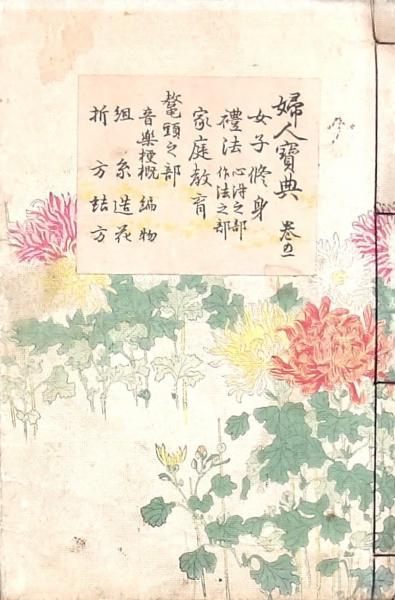 婦人寶典 巻五
女子修身
禮法 心得之部 作法之部
家庭教育
鼇頭之部
音樂梗概 編物
組糸 造花
折方 結方